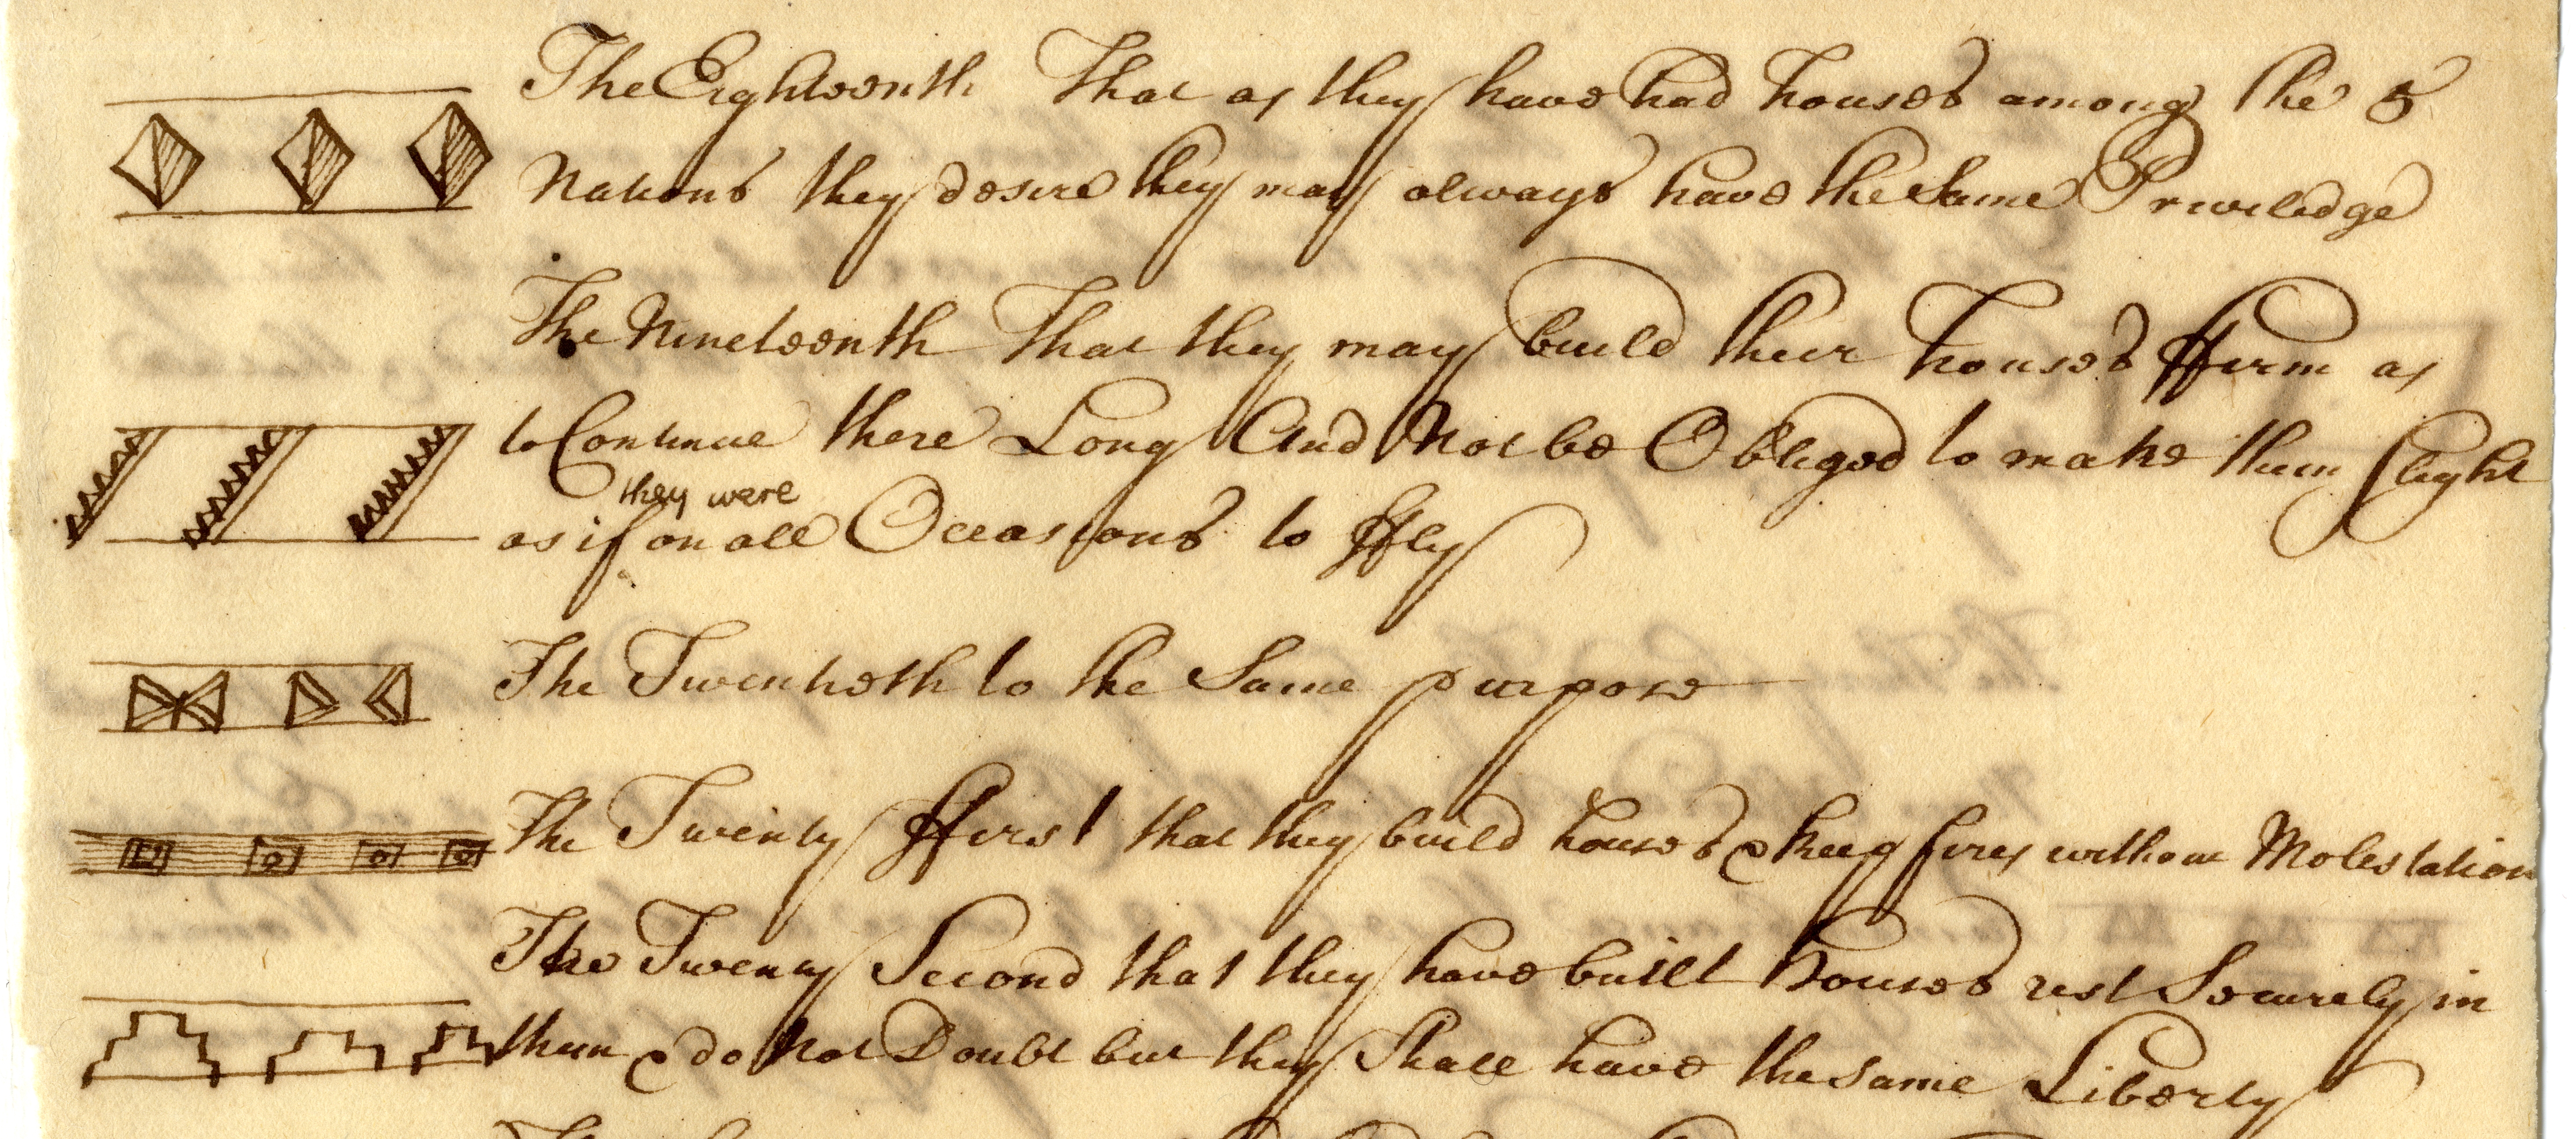 The Eighteenth That as they have had houses among the 5
Nations they desire they may always have the Same Priviledge
The Nineteenth That they may build their houses ffirm as
to Continue there Long And Not be Obliged to make them Slight
they were
as if on all Occasions to ffly
The Twentieth to the Same purpose
The Twenty ffirst that they build houses & keep fires without Molestation
The Twenty Second that they have built houses rest Securely in
them & do Not Doubt but they Shall have the same Liberty